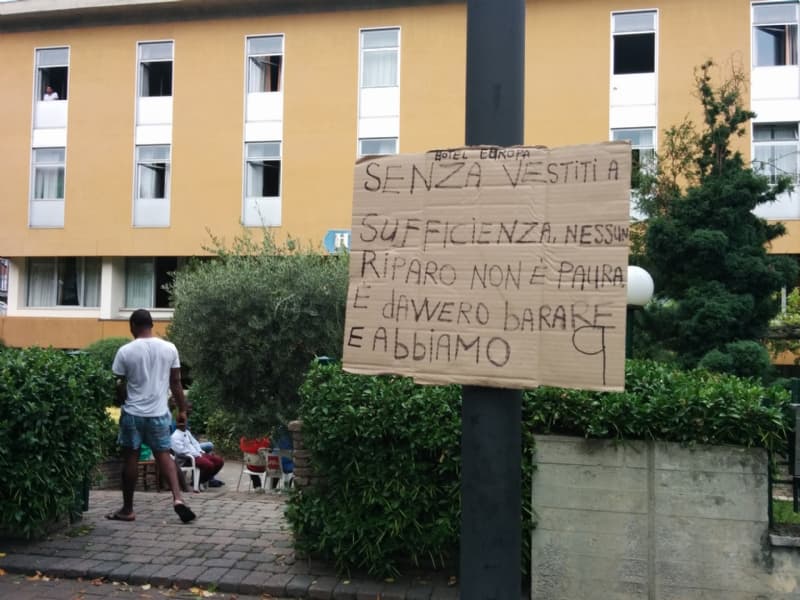 HOTEL EUROPA
SENZA VESTITI A
SUFFICIENZA, NESSUN
RIPARO NON È PAURA
È dAVVERO bARARE
E AbbiAMO
H